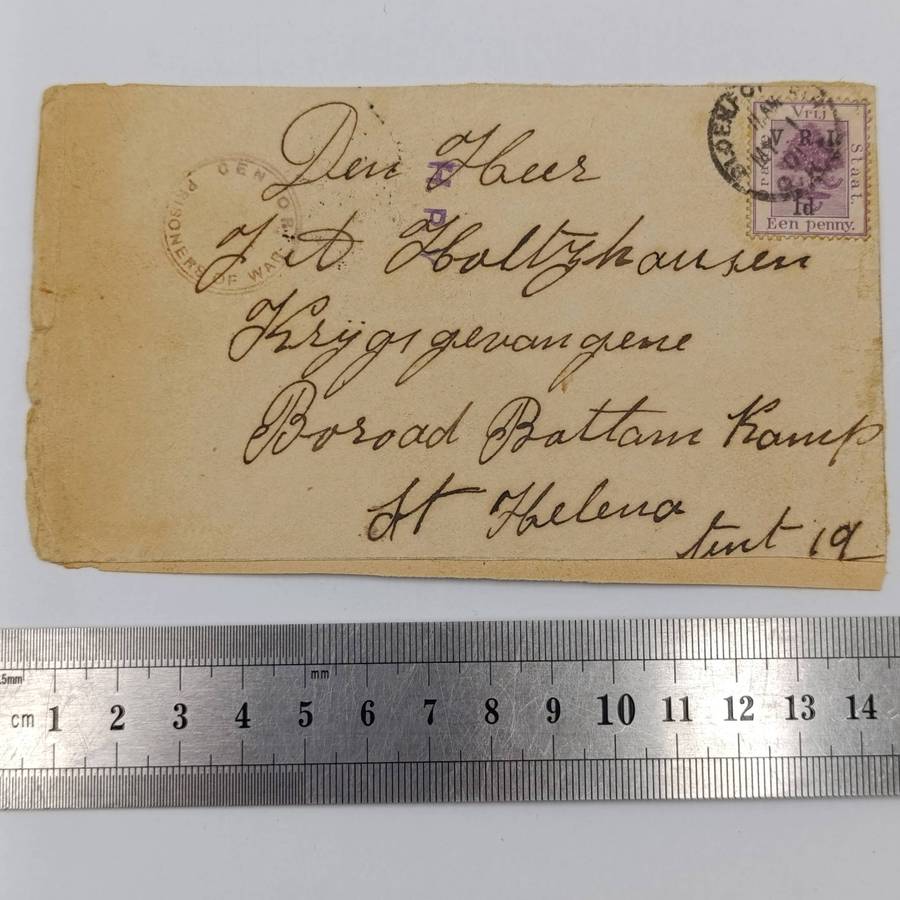 Den Heer
Holtzhausen
Krygsgevangene
Boroad Bottam Kamp
St Helena
tent 19
CENSOR
PRISONERS OF WAR
BLOEMFO
Vrij
Staat.
V. R. I.
1d
Een penny.
.5mm
mm
cm 1 2 3 4 5 6 7 8 9 10 11 12 13 14